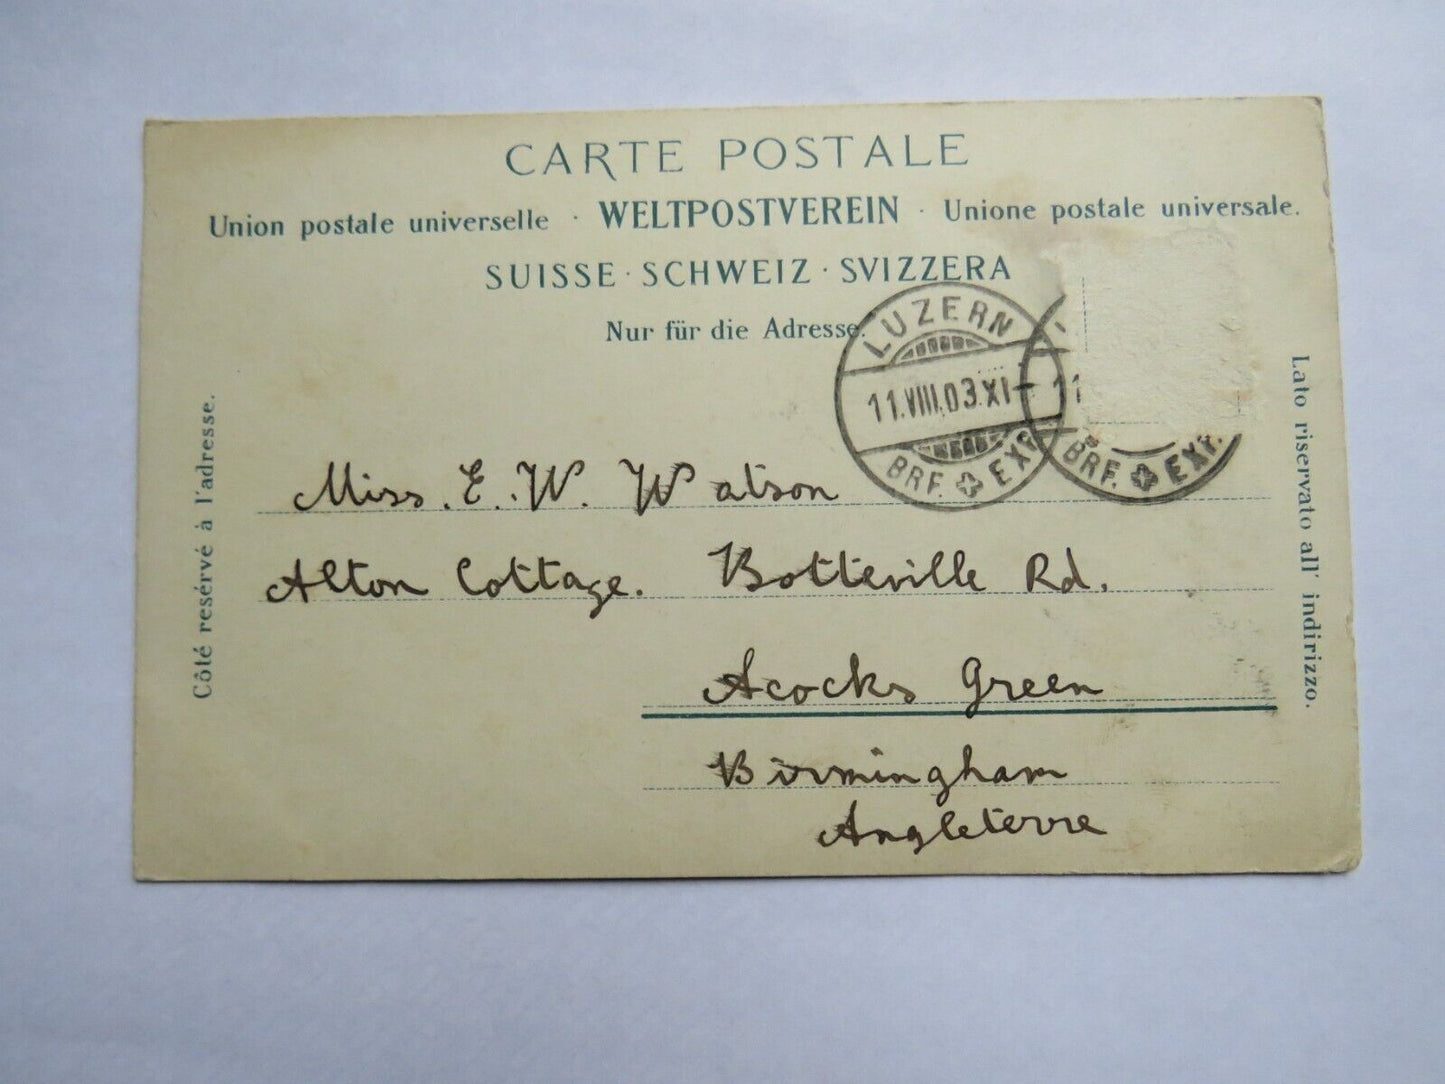 CARTE POSTALE
Union postale universelle · WELTPOSTVEREIN · Unione postale universale.
SUISSE · SCHWEIZ · SVIZZERA
Nur für die Adresse.
LUZERN
11.VIII.03.XI-
BRF. EXP.
11
BRF. EXP.
Côté resérvé à l'adresse.
Lato riservato all' indirizzo.
Miss. E. W. Watson
Alton Cottage. Botteville Rd.
Acocks Green
Birmingham
Angleterre